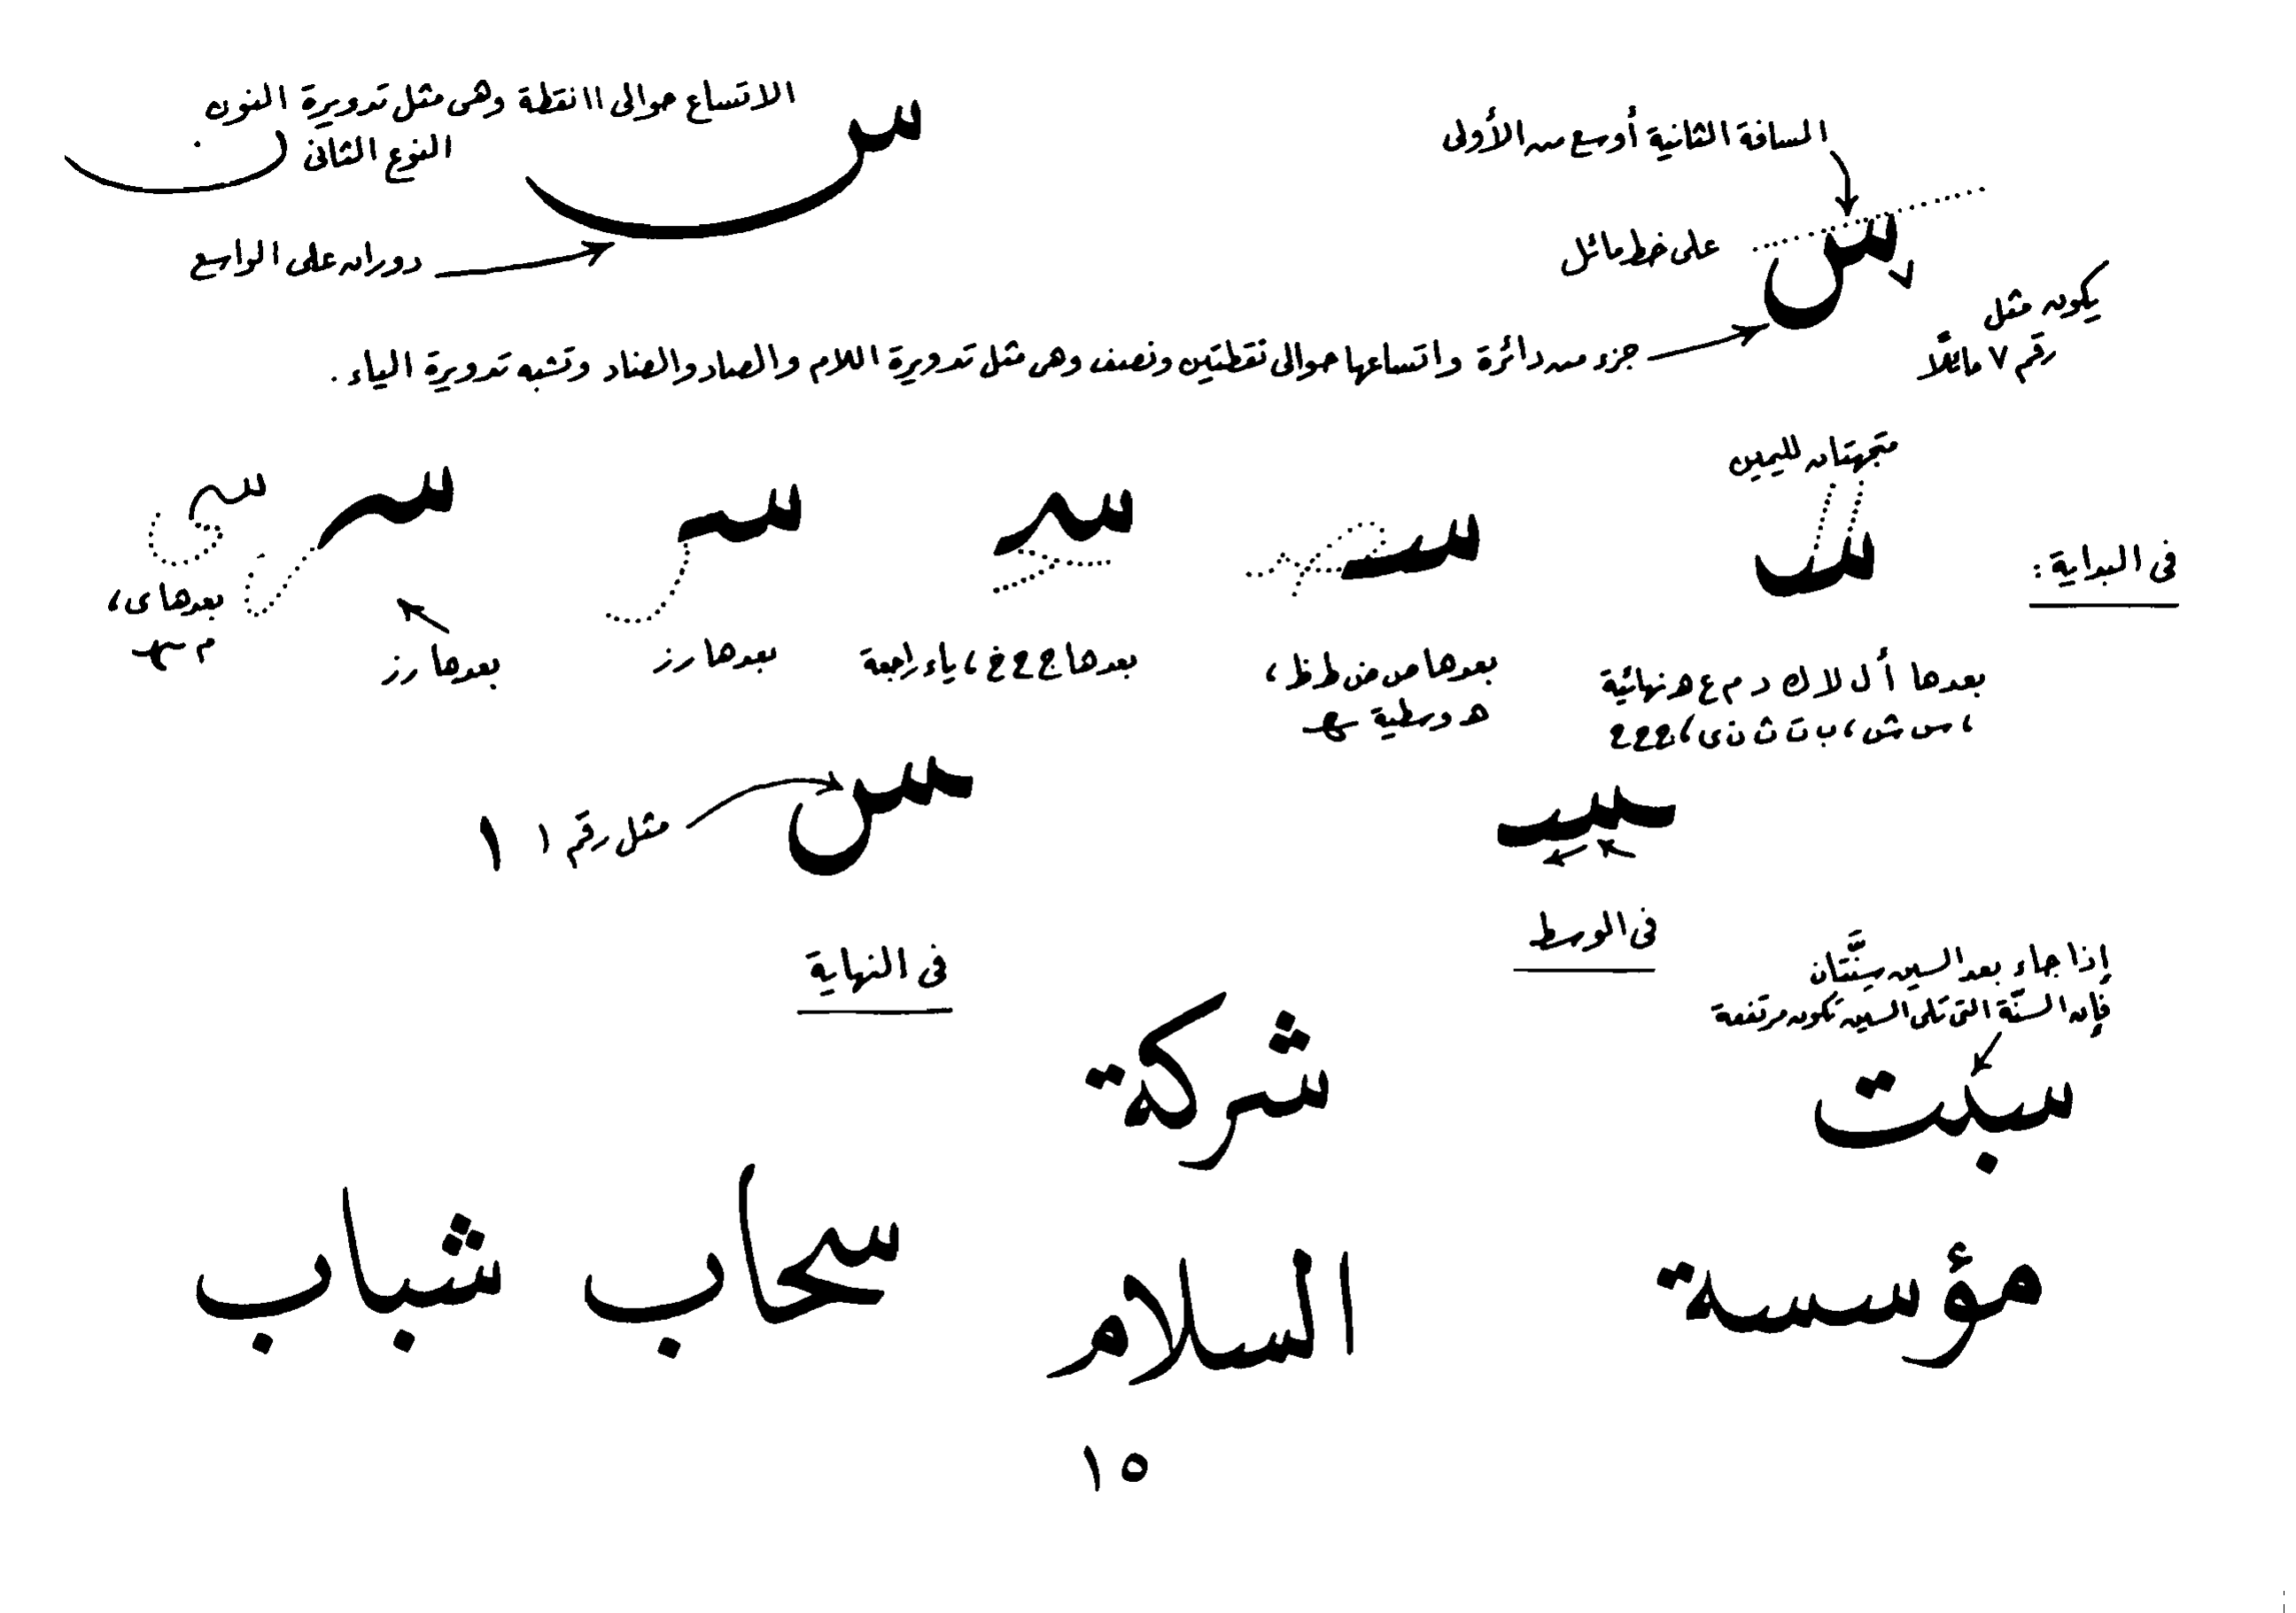 الاتساع حوالى ١١ نقطة وهى مثل تدويرة النون
النوع الثانى
س
ں
دوران على الواسع
المسافة الثانية أوسع من الأولى
س
على خط مائل
٧
يكون مثل
رقم ٧ مائلًا
جزء من دائرة واتساعها حوالى نقطتين ونصف وهى مثل تدويرة اللام والصاد والضاد وتشبه تدويرة الياء .
متجهتان لليمين
فى البداية :
بعدها أ ل لا ك د م ع ه نهائية
، س ش ، ب ت ث ن ى ، ج ح خ
بعدها ص ض ط ظ ،
ه وسطية
بعدها ج ح خ ، ياء راجعة
بعدها ر ز
بعدها ر ز
بعدها ى ،
م
س
مثل رقم ١
١
فى الوسط
فى النهاية
إذا جاء بعد السين سِنَّتَان
فإن السنّة التى تلى السين تكون مرتفعة
سبت
شركة
مؤسسة
السلام
سحاب
شباب
١٥